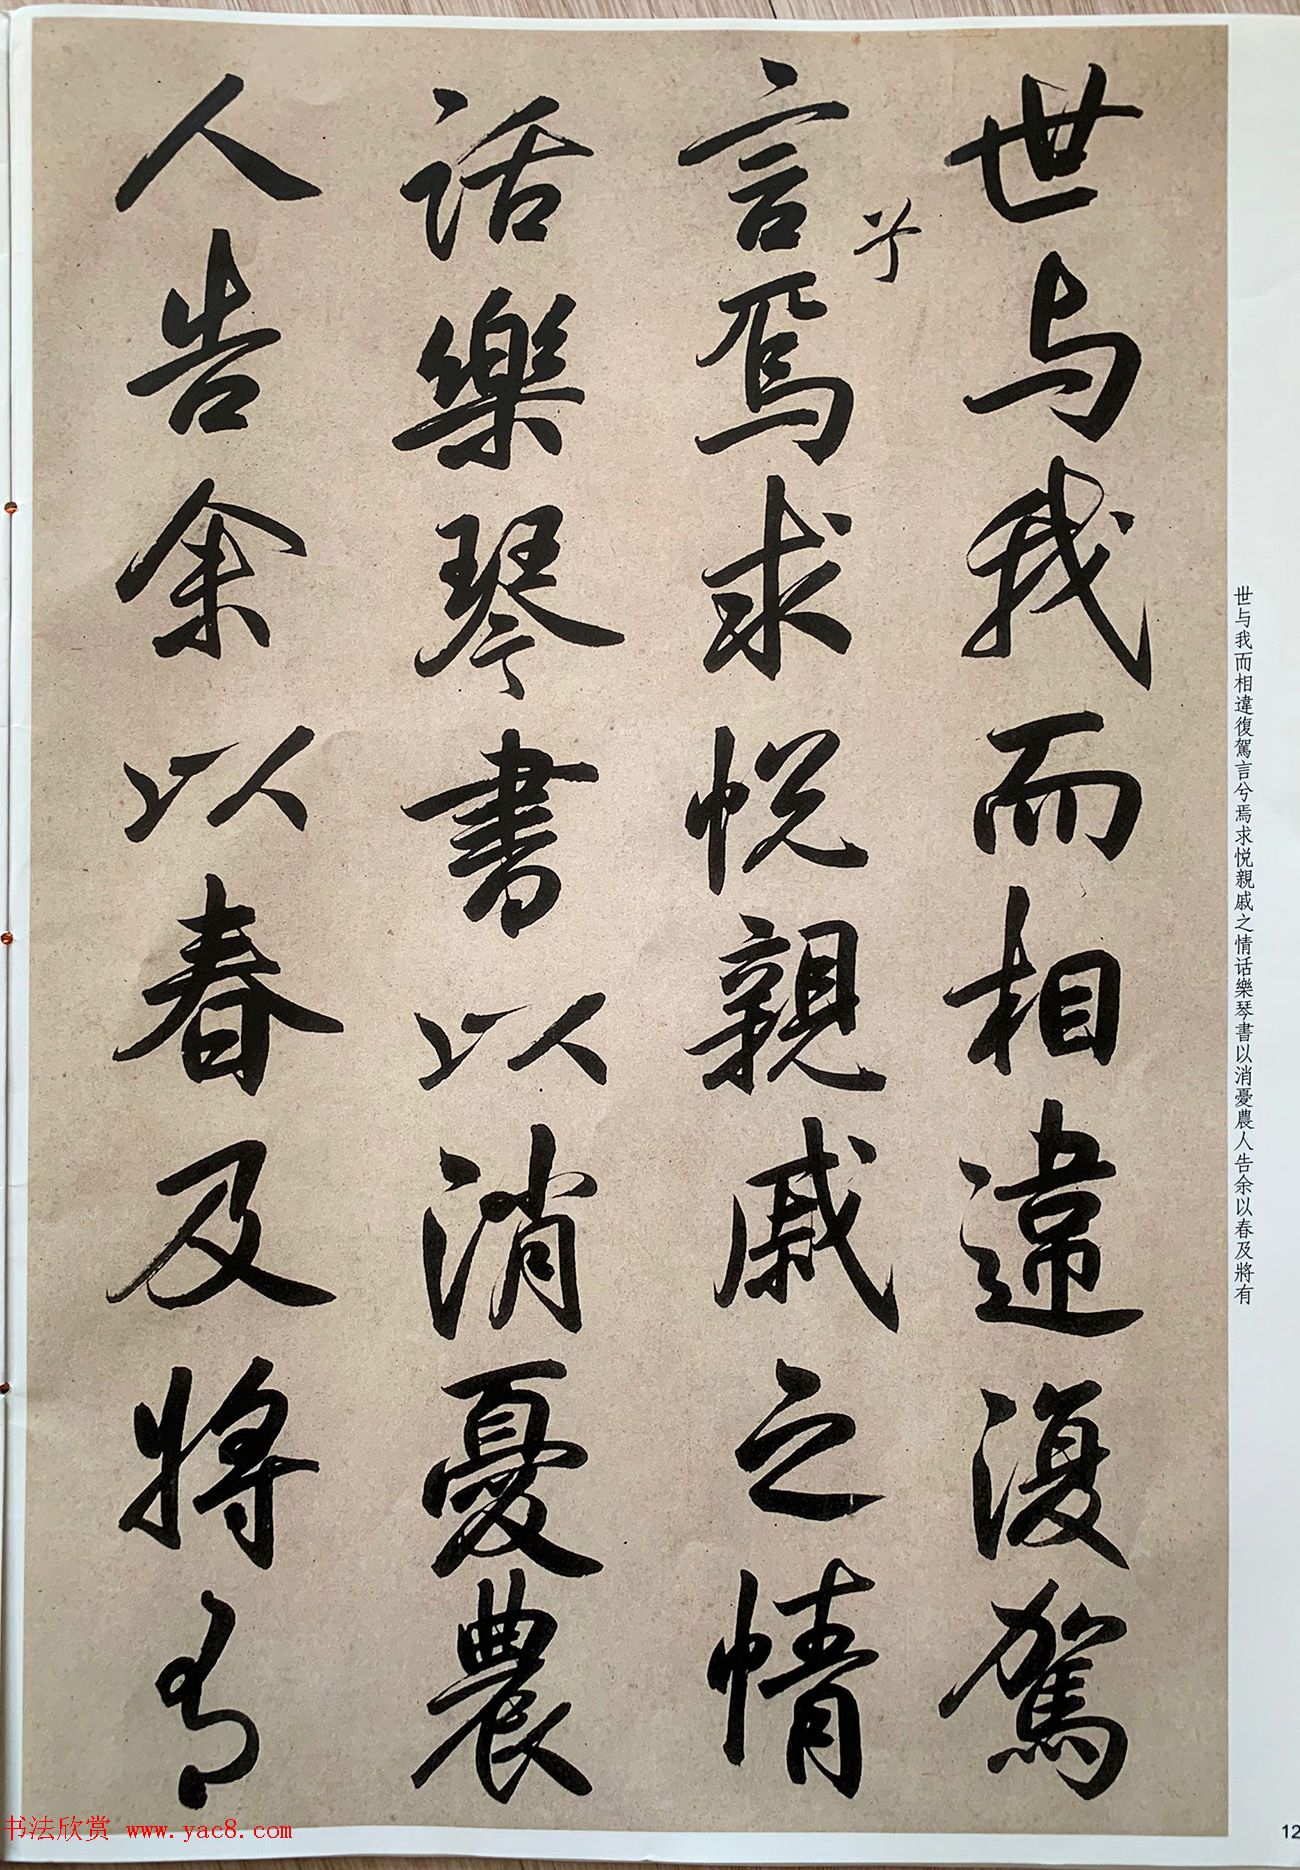 世与我而相違復駕
言兮焉求悅親戚之情
話樂琴書以消憂農
人告余以春及將有
世与我而相違復駕言兮焉求悅親戚之情话樂琴書以消憂農人告余以春及將有
12
书法欣赏 www.yac8.com